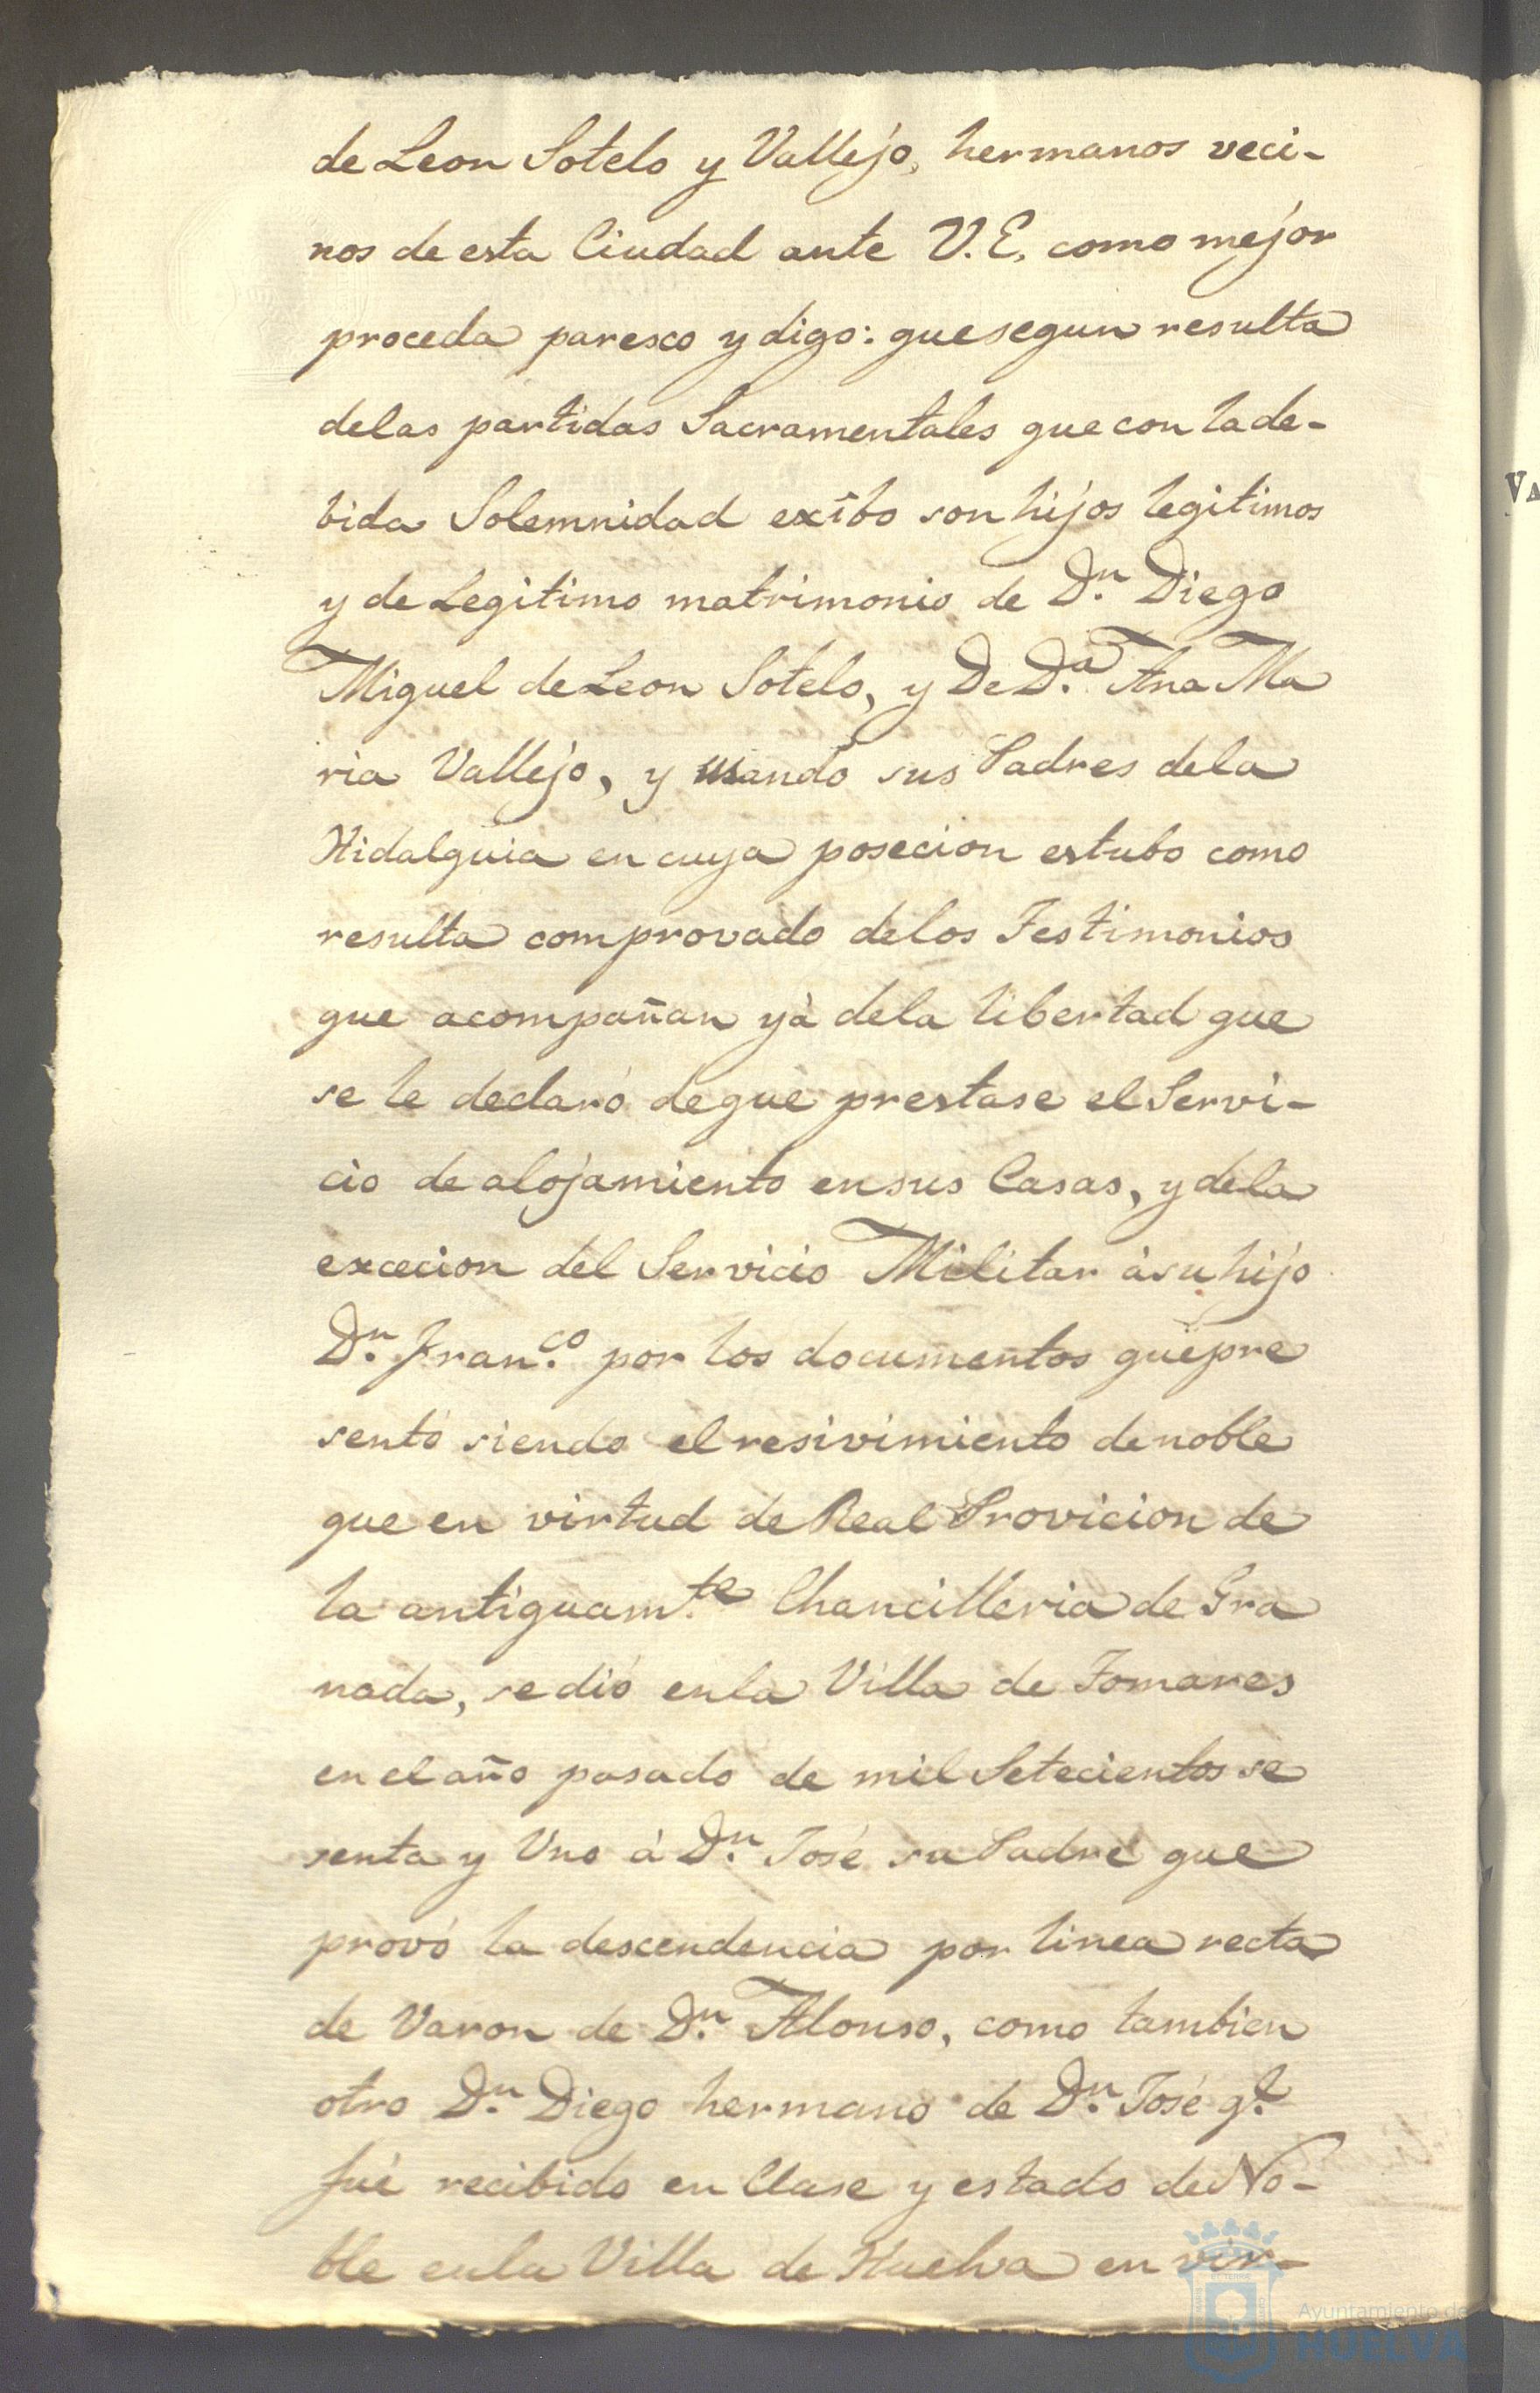 de Leon Sotelo y Vallejo, hermanos veci-
nos de esta Ciudad ante V.E. como mejor
proceda paresco y digo: que segun resulta
de las partidas Sacramentales que con la de-
vida Solemnidad exîbo son hijos legitimos
y de Legitimo matrimonio de Dn. Diego
Miguel de Leon Sotelo, y De Da. Ana Ma
ria Vallejo, y usando sus Padres de la
Hidalguia en cuya posecion estubo como
resulta comprovado de los Testimonios
que acompañan yá de la libertad que
se le declaró de que prestase el Servi-
cio de alojamiento en sus Casas, y de la
excecion del Servicio Militar á su hijo
Dn. Fran.co por los documentos que pre
sentó siendo el resivimiento de noble
que en virtud de Real Provicion de
la antiguam.te Chancilleria de Gra
nada, se dió en la Villa de Tomares
en el año pasado de mil Setecientos se
senta y Uno á Dn. José su Padre que
provó la descendencia por linea recta
de Varon de Dn. Alonso, como tambien
otro Dn. Diego hermano de Dn. José q.e
fué recibido en Clase y estado de No-
ble en la Villa de Huelva en vir-
Va
Ayuntamiento de
HUELVA